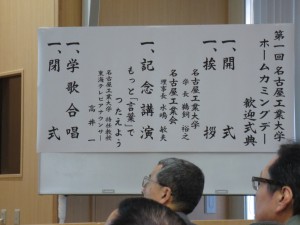 第一回 名古屋工業大学
ホームカミングデー
歓迎式典
一、開式
一、挨拶
名古屋工業大学
学長 鶴飼 裕之
名古屋工業会
理事長 水嶋 敏夫
一、記念講演
もっと「言葉」で
つたえよう
名古屋工業大学 特任教授
東海テレビアナウンサー
高井 一
一、学歌合唱
一、閉式